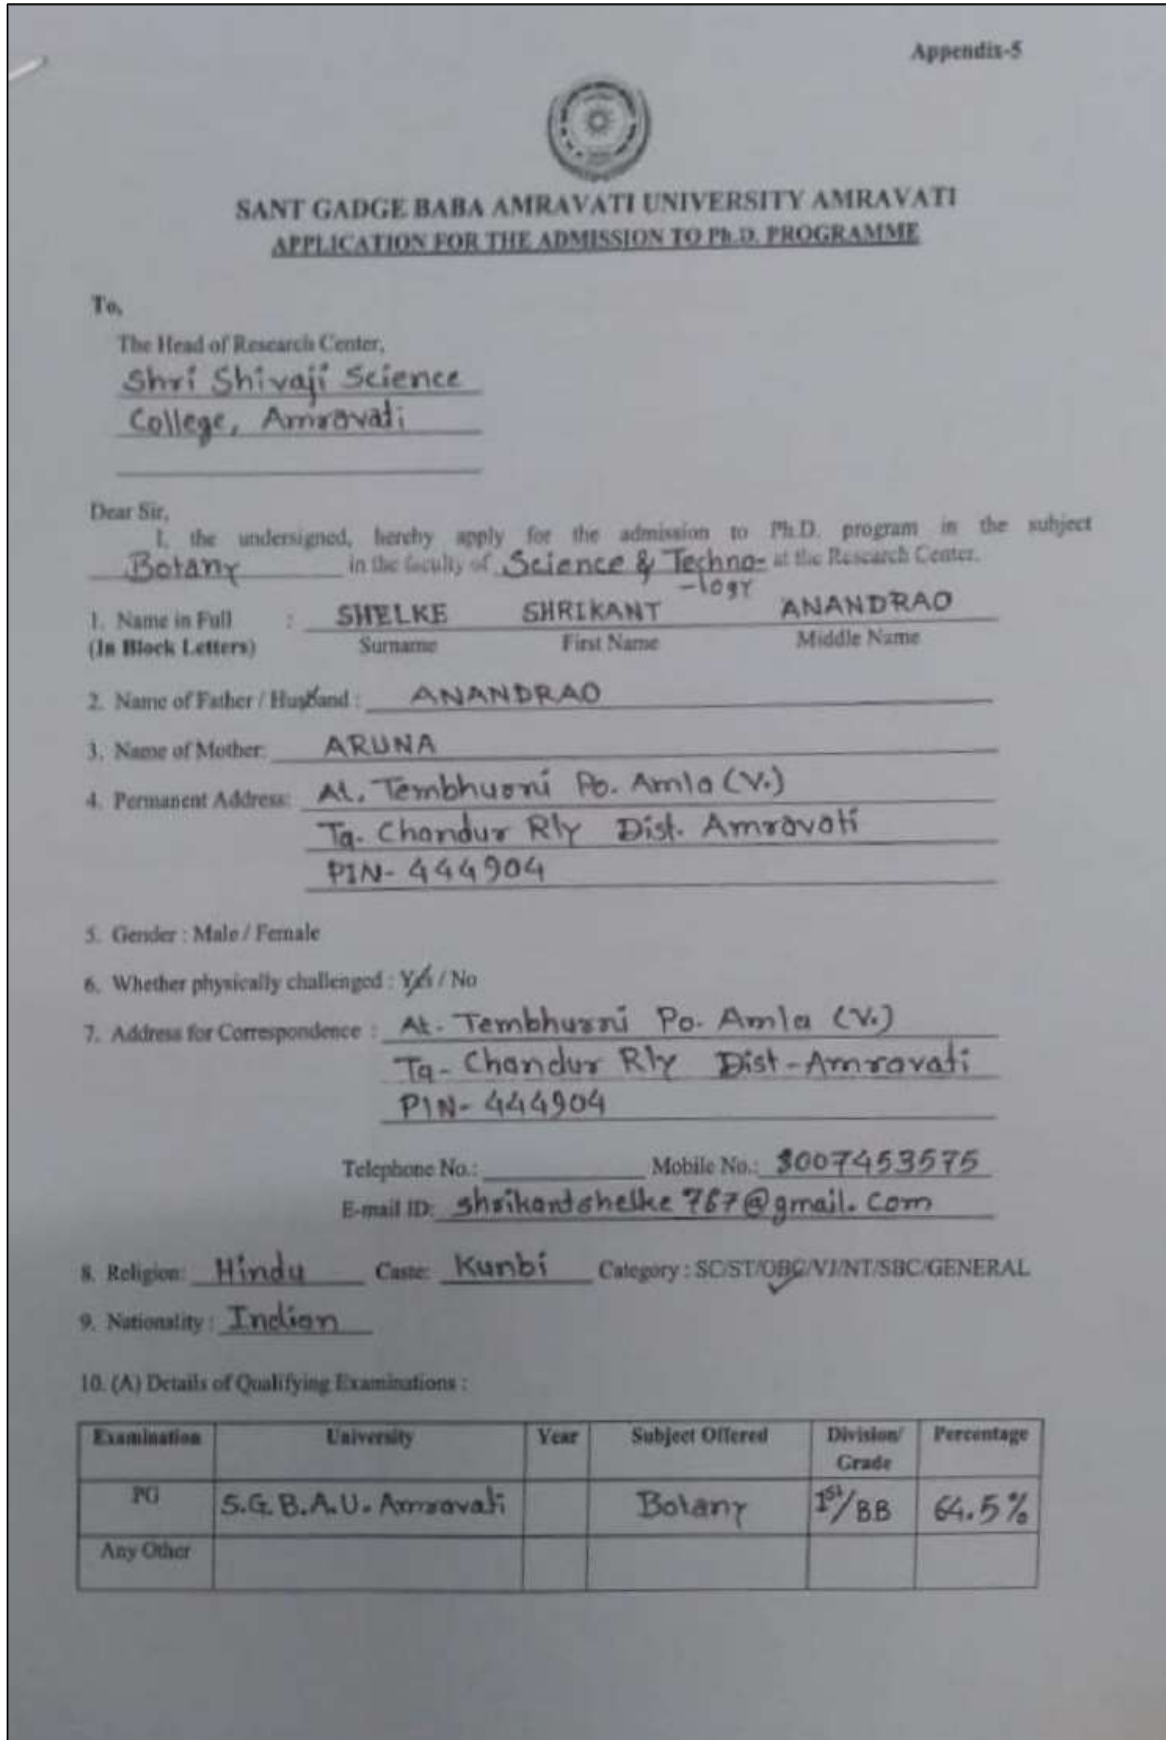 Appendix-5
SANT GADGE BABA AMRAVATI UNIVERSITY AMRAVATI
APPLICATION FOR THE ADMISSION TO Ph.D. PROGRAMME
To,
The Head of Research Center,
Shri Shivaji Science
College, Amravati
Dear Sir,
I, the undersigned, hereby apply for the admission to Ph.D. program in the subject
Botany in the faculty of Science & Techno- at the Research Center.
-logy
1. Name in Full : SHELKE SHRIKANT ANANDRAO
(In Block Letters) Surname First Name Middle Name
2. Name of Father / Husband : ANANDRAO
3. Name of Mother: ARUNA
4. Permanent Address: At. Tembhurni Po. Amla (V.)
Tq. Chandur Rly Dist. Amravati
PIN- 444904
5. Gender : Male / Female
6. Whether physically challenged : Yes / No
7. Address for Correspondence : At. Tembhurni Po. Amla (V.)
Tq- Chandur Rly Dist-Amravati
PIN- 444904
Telephone No.: Mobile No.: 8007453575
E-mail ID: shrikantshelke767@gmail.com
8. Religion: Hindu Caste: Kunbi Category : SC/ST/OBC/VJ/NT/SBC/GENERAL
9. Nationality : Indian
10. (A) Details of Qualifying Examinations :
Examination University Year Subject Offered Division/ Percentage
Grade
PG S.G.B.A.U. Amravati Botany Ist/BB 64.5%
Any Other